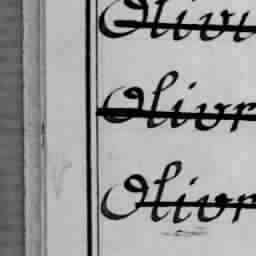 Olivi
Olivr
Olivr